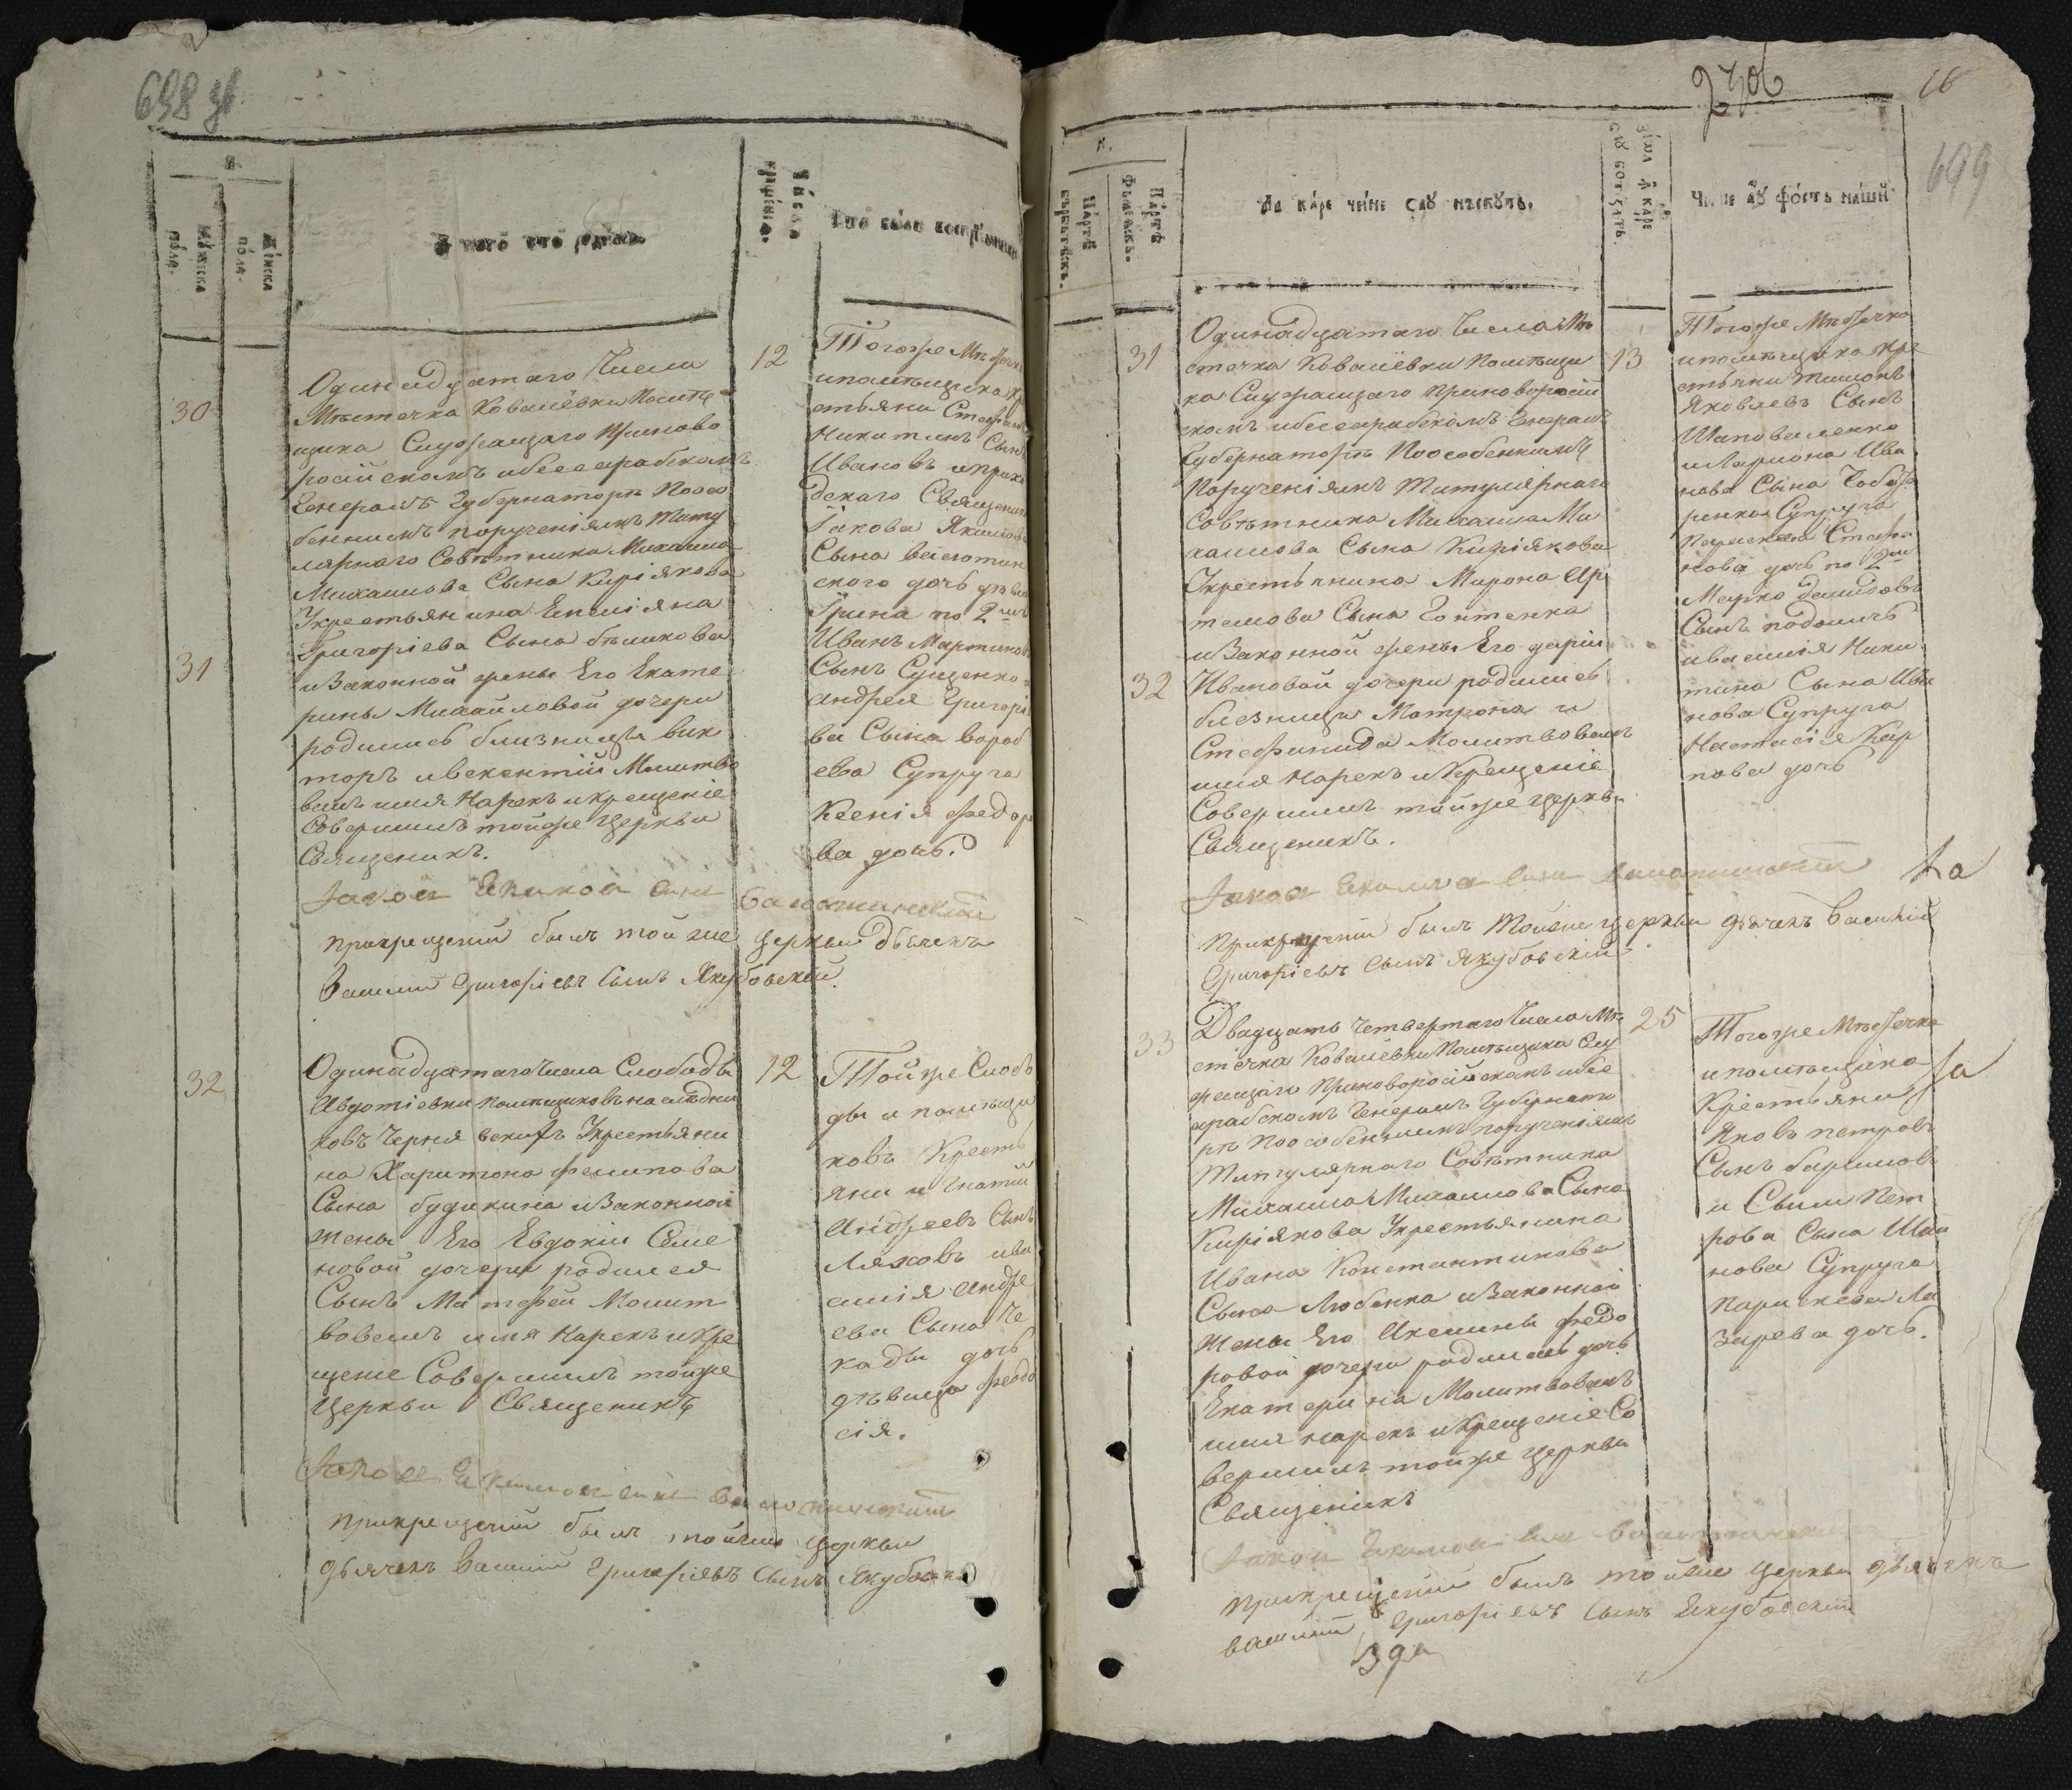 698 зв
№.
Мужеска пола.
Женска пола.
У кого кто родился.
Число крещенія.
Кто были воспріемники
30
31
Одинадцатаго Числа
Мѣстечка Ковалёвки Помѣ
щика Служащаго Приново
россійскомъ ибессарабскомъ
Генералъ Губернаторѣ Поосо
беннымъ порученіямъ Титу
лярнаго Совѣтника Михаила
Михаилова Сына Киріякова
Укрестьянина Емеліяна
Григоріева Сына бѣликова
иЗаконной жены Его Екате
рины Михайловой дочери
родились близнецы вик
торъ ивекентій Молитво
валъ имя Нарекъ икрещеніе
Совершилъ тойже Церкви
Священикъ.
12
Тогоже Мѣстечка
ипомѣщика Кре
стьяни Стефанъ
Никитинъ Сынъ
Ивановъ иприхо
дскаго Священика
Іакова Якимова
Сына
скаго дочь дѣвица
Ірина по 2мъ
Иванъ Мартиновъ
Сынъ Сущенко и
андрея Григорі
ва Сына вороб
ева Супруга
Ксенія Федор
ва дочь.
Іаков Екимов син
прикрещеніи былъ той же Церкви дьячекъ
Василій Григоріевъ Сынъ Якубовскій.
32
Одинадцатаго Числа Слободы
Авдотіевки Помѣщиковъ наслѣдни
ковъ Чернявскихъ Укрестьяни
на Харитона Филипова
Сына будикина иЗаконной
жены Его Евдокіи Семе
новой дочери родился
Сынъ Матфей Молит
вовалъ имя Нарекъ икре
щеніе Совершилъ тойже
Церкви Священикъ
12
Тойже Слобо
ды и помѣщи
ковъ Кресть
яни Игнатій
Андреевъ Сынъ
Ляховъ ива
силія Андре
ева Сына Че
кады дочь
дѣвица Феодо
сія.
Іаков Екимов син
прикрещеніи былъ тойже церкви
дьячекъ Василій Григоріевъ Сынъ Якубовскій
2706
16
699
№.
Партѣ бърбътѣскъ.
Партѣ фъмеѧскъ.
Ла каре чине сау нъскутъ.
Зіоа ѫ каре сау ботезатъ.
Чине ау фостъ нашй
31
32
Одинадцатаго Числа Мѣ
стечка Ковалёвки Помѣщи
ка Служащаго Приновороссій
скомъ ибессарабскомъ Генералъ
Губернаторѣ Поособеннымъ
Порученіямъ Титулярнаго
Совѣтника Михаила Ми
хаилова Сына Киріякова
Укрестьянина Мирона Ар
темова Сына Гонтенка
иЗаконной жены Его даріи
Ивановой дочери родились
близницы Матрона и
Стефанида Молитвовалъ
имя Нарекъ иКрещеніе
Совершилъ тойже Церкви
Священикъ.
13
Тогоже Мѣстечка
ипомѣщика кре
стьяни Тимонъ
Яковлевъ Сынъ
Шаповаленко
иЛариона Ива
нова Сына Бобы
ренка Супруга
Параскева Стефа
нова дочь по 2мъ
Марко Демидовъ
Сынъ
ивасилія Ники
тина Сына Ива
нова Супруга
Настасія Кар
пова дочь
Іаков Екимов син
Прикрещеніи былъ Тойже церкви дьячекъ Василій
Григоріевъ Сынъ Якубовскій
33
Двадцать Четвертаго Числа Мѣ
стечка Ковалёвки Помѣщика Слу
жащаго Приновороссійскомъ ибес
арабскомъ Генералъ Губернато
рѣ Поособеннымъ порученіямъ
Титулярнаго Совѣтника
Михаила Михаилова Сына
Киріякова Укрестьянина
Ивана Константинова
Сына Любенка иЗаконной
жены Его Акелины Федо
ровой дочери родилась дочь
Екатерина Молитвовалъ
имя нарекъ иКрещеніе Со
вершилъ тойже церкви
Священикъ
25
Тогоже Мѣстечка
ипомѣщика
Крестьяни
Яковъ петровъ
Сынъ
и Савы Пет
рова Сына Ива
нова Супруга
Параскева Ла
зарева дочь.
Іаков Екимов син
прикрещеніи былъ тойже церкви дьячекъ
василій Григоріевъ Сынъ Якубовскій